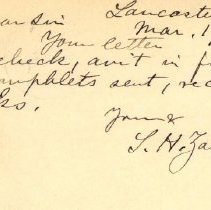 Lancaster
ar Sir Mar. 1
Your letter
check, am't in f
amphlets sent, rec
ks.
Yours
S. H. Za